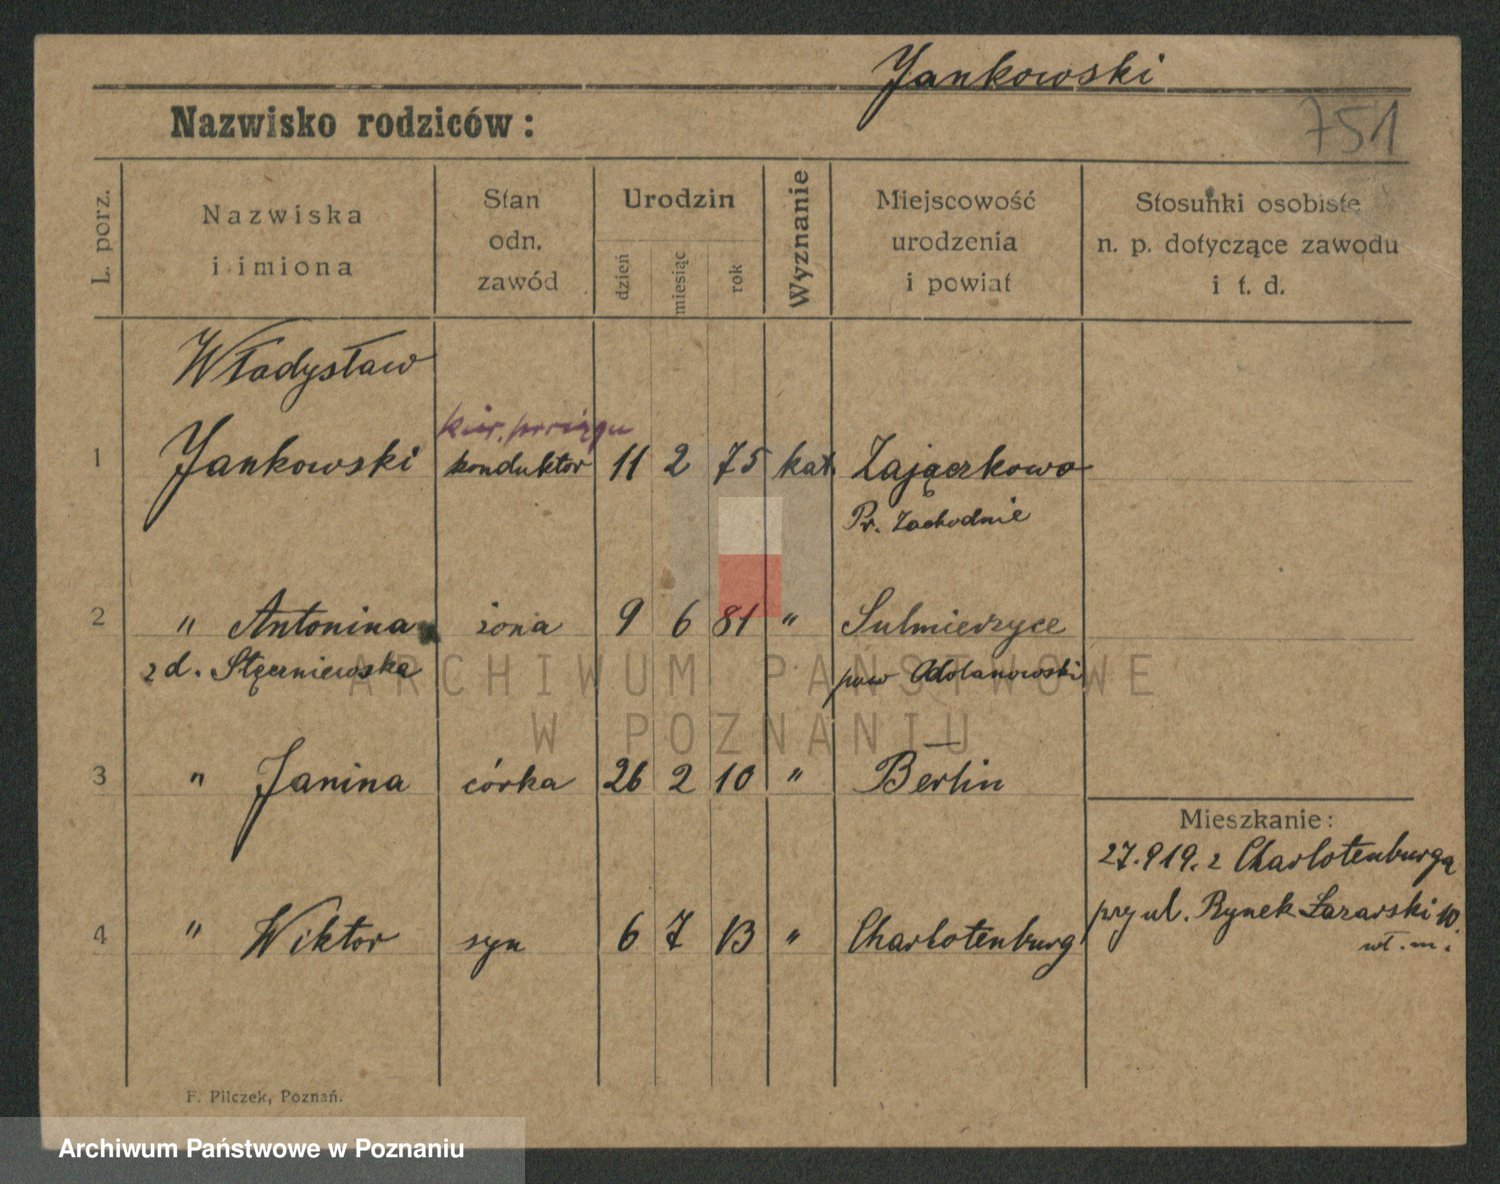 Jankowski
751
Nazwisko rodziców:
L. porz.
Nazwiska
i imiona
Stan
odn.
zawód
Urodzin
dzień
miesiąc
rok
Wyznanie
Miejscowość
urodzenia
i powiat
Stosunki osobiste
n. p. dotyczące zawodu
i t. d.
Władysław
kier. pociągu
1 Jankowski konduktor 11 2 75 kat. Zajączkowo
Pr. Zachodnie
2 " Antonina żona 9 6 81 " Sulmierzyce
z d. Stęczniewska pow Adolanowski
ARCHIWUM PAŃSTWOWE
W POZNANIU
3 " Janina córka 26 2 10 " Berlin
Mieszkanie:
27.9 19. z Charlotenburga
przy ul. Rynek Łazarski 10.
wł. m.
4 " Wiktor syn 6 7 13 " Charlotenburg
F. Pilczek, Poznań.
Archiwum Państwowe w Poznaniu